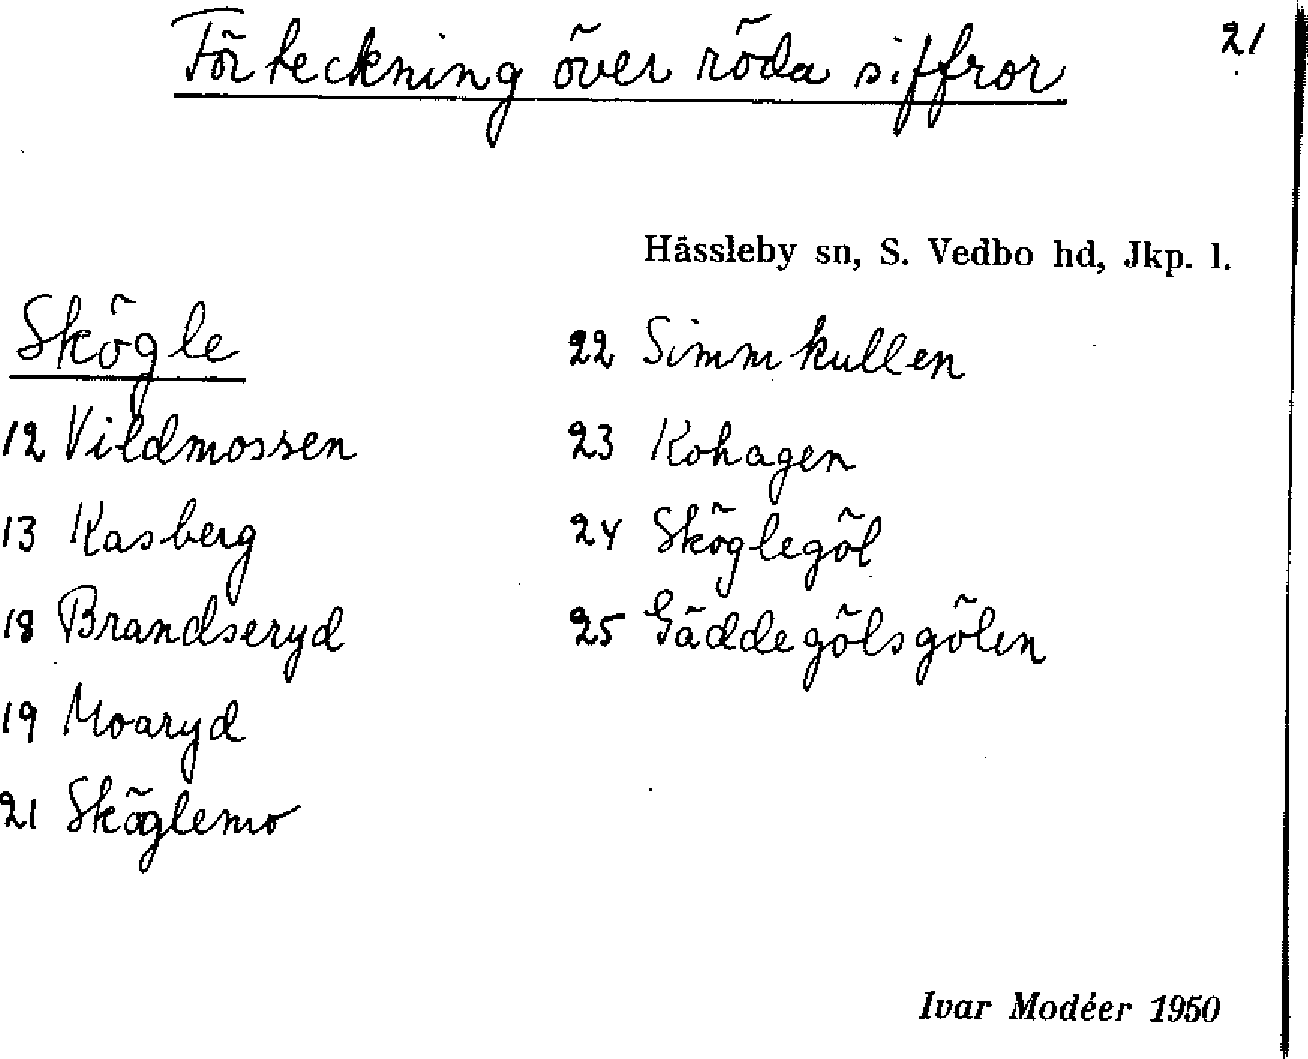 Förteckning över röda siffror
21
Hässleby sn, S. Vedbo hd, Jkp. l.
Skögle
12 Vildmossen
13 Kasberg
18 Brandseryd
19 Moaryd
21 Sköglemo
22 Simmkullen
23 Kohagen
24 Sköglegöl
25 Gäddegölsgölen
Ivar Modéer 1950